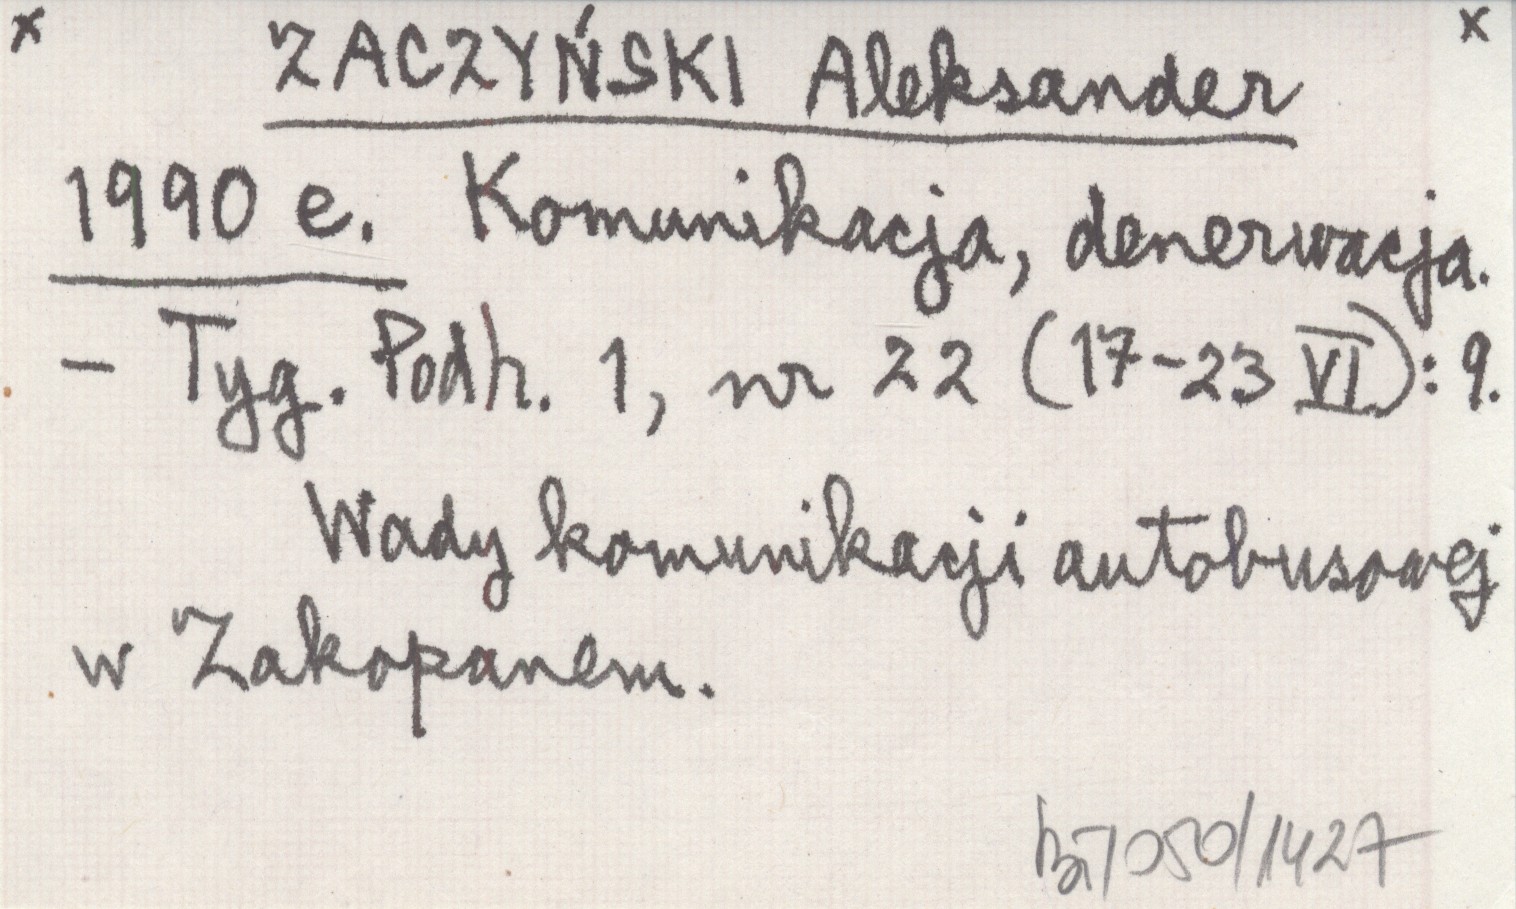 x ZACZYŃSKI Aleksander x
1990 e. Komunikacja, denerwacja.
– Tyg. Podh. 1, nr 22 (17–23 VI): 9.
Wady komunikacji autobusowej
w Zakopanem.
/050/1427